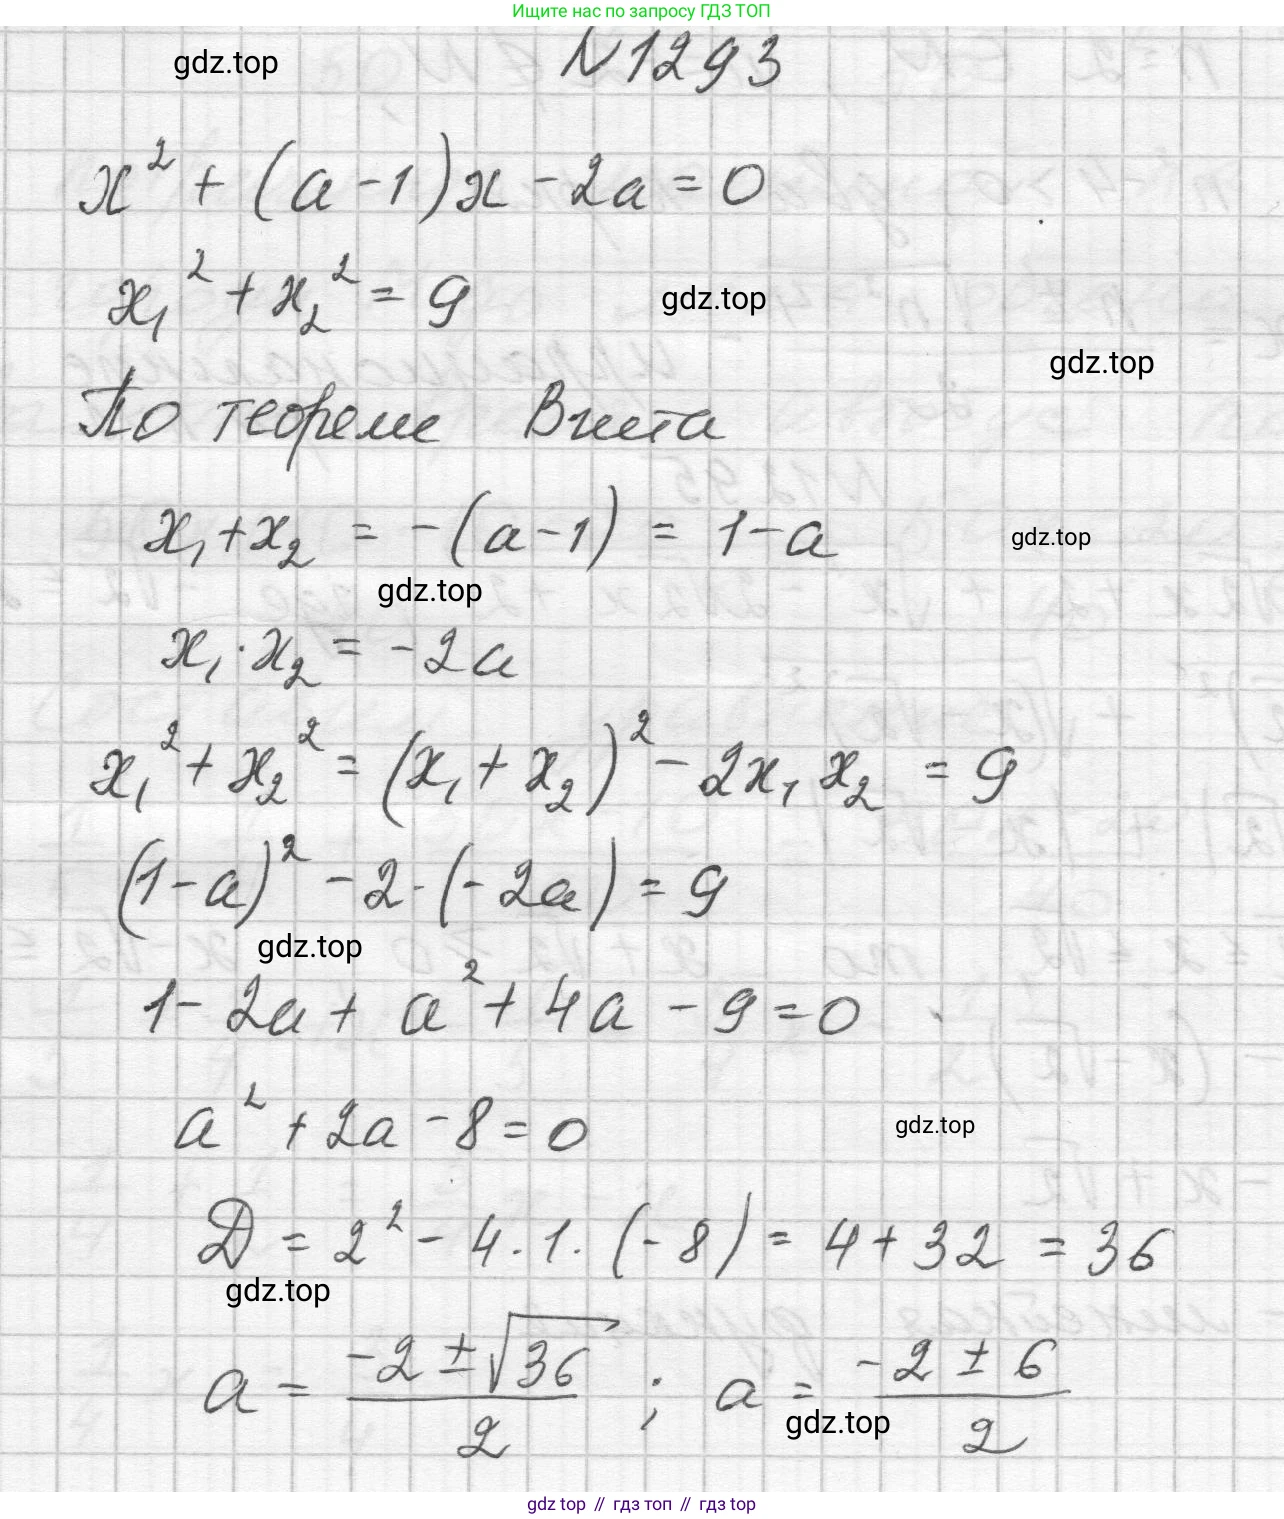 Ищите нас по запросу ГДЗ ТОП
gdz.top
N1293
x² + (a - 1)x - 2a = 0
x₁² + x₂² = 9
gdz.top
gdz.top
По теореме Виета
x₁ + x₂ = -(a - 1) = 1 - a
gdz.top
gdz.top
x₁ · x₂ = -2a
x₁² + x₂² = (x₁ + x₂)² - 2x₁ x₂ = 9
(1 - a)² - 2 · (-2a) = 9
gdz.top
1 - 2a + a² + 4a - 9 = 0
a² + 2a - 8 = 0
gdz.top
D = 2² - 4 · 1 · (-8) = 4 + 32 = 36
gdz.top
a = (-2 ± √36)/2 ; a = (-2 ± 6)/2
gdz.top
gdz top // гдз топ // гдз top